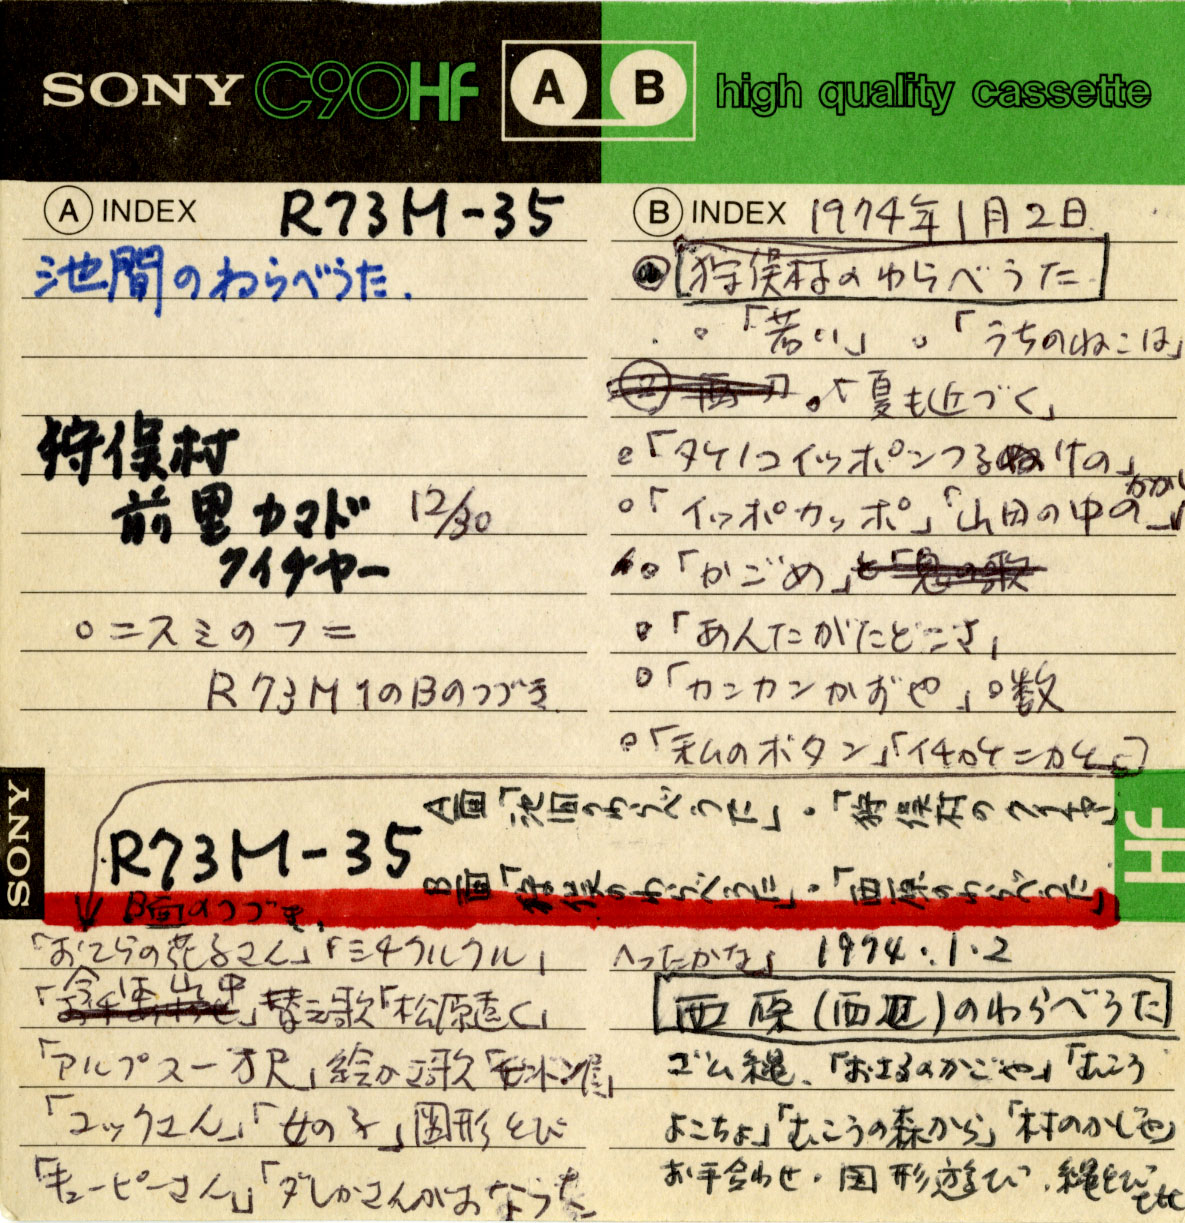 SONY C90Hf A B high quality cassette
A INDEX R73M-35
池間のわらべうた.
狩俣村
前里カマド 12/30
クイチャー
○ニスミのフニ
R73M1のBのつづき
B INDEX 1974年1月2日
狩俣村のわらべうた
○「若い」 ○「うちのねこは」
○「夏も近づく」
○「タケノコイッポンつる
○「イッポカッポ」「山田の中の かかし」
○「かごめ」と「鬼の歌
○「あんたがたどこさ」
○「カンカンかおや」○数
○「私のボタン」「イチカケニカケ」
SONY
R73M-35
A面「池間のわらべうた」・「狩俣村のクイチャー」
B面「狩俣のわらべうた」・「西原のわらべうた」
Hf
B面のつづき.
「おてらの花子さん」「ミチクルクル」
「今は山中」替え歌「松原遠く」
「アルプス一万尺」絵かき歌
「コックさん」「女の子」図形とび
「キューピーさん」「ダレかさんがおなら
へったかな」 1974.1.2
西原(西辺)のわらべうた
ゴム縄、「おさるのかごや」「むこう
よこちょ」「むこうの森から」「村のかじや」
お手合わせ・図形遊び、縄とび etc